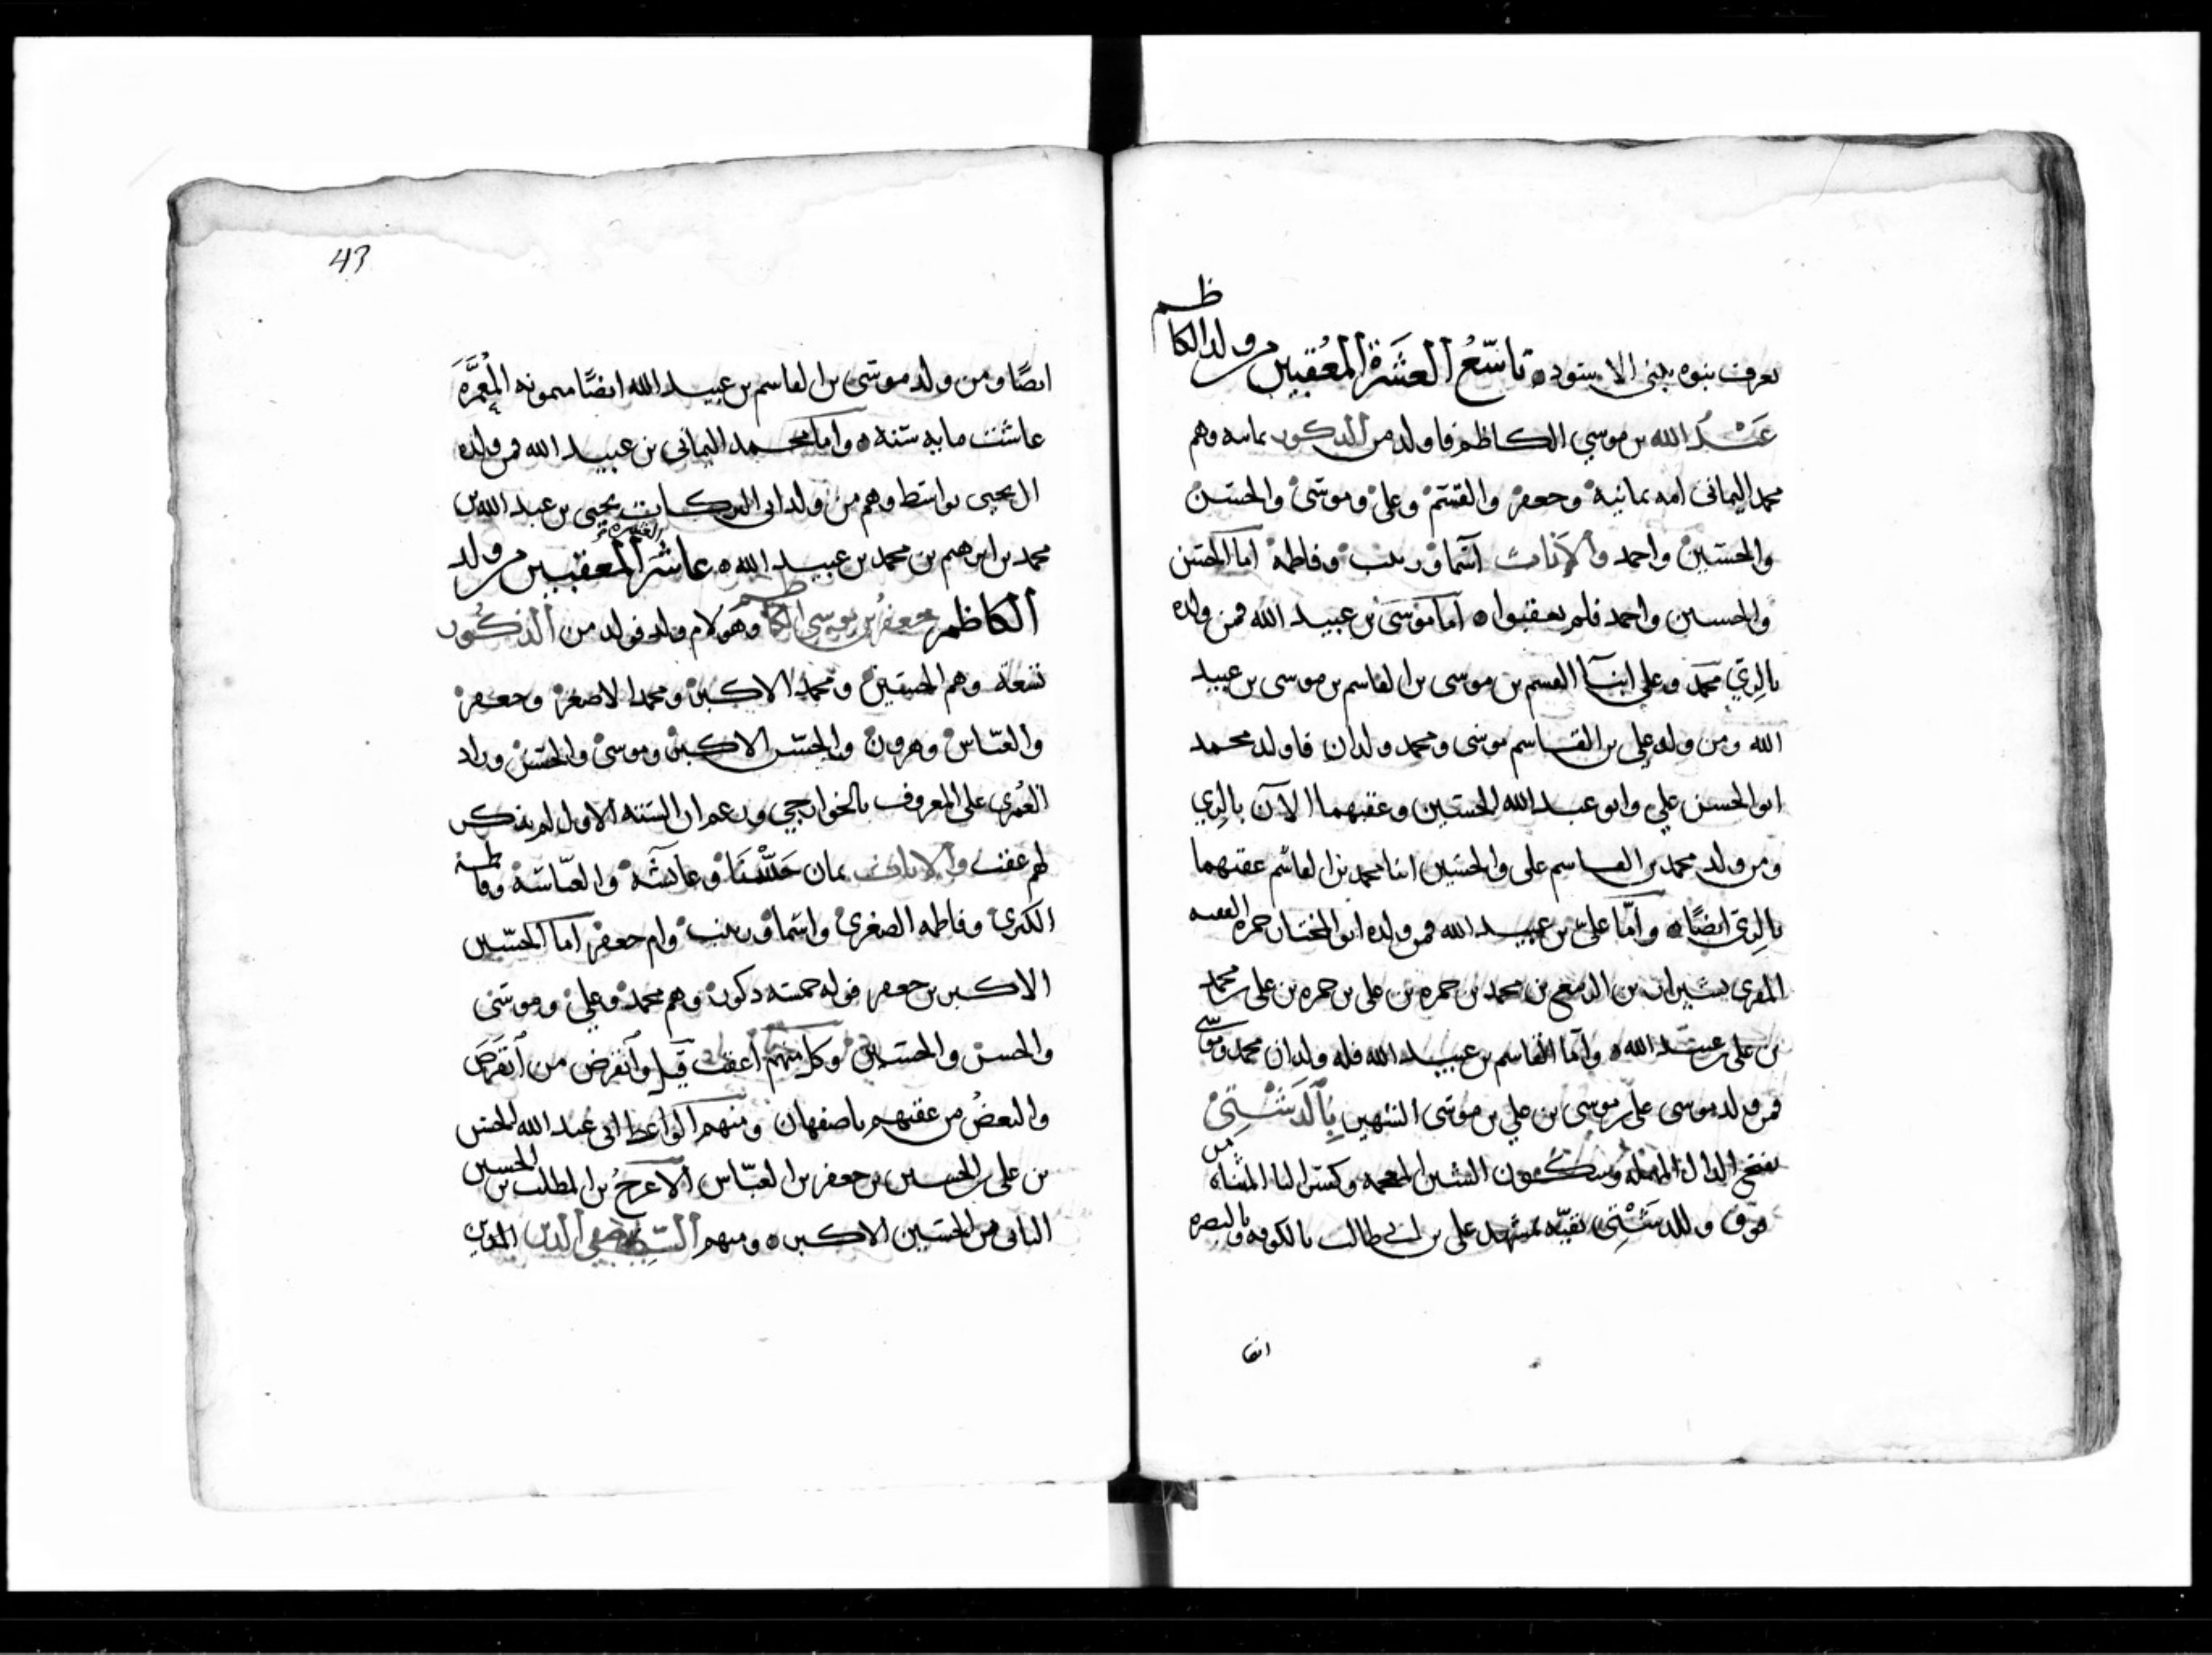 يعرف بنوه ببني الاسود ٥ تاسع العشرة المعقبين من ولد الكاظم
عبد الله بن موسى الكاظم فاولد من الذكور ثمانيه وهم
محمد اليماني امه يمانية وجعفر والقسم وعلي وموسى والحسن
والحسين واحمد والاناث اسما وزينب وفاطمة اما الحسن
والحسين واحمد فلم يعقبوا ٥ اما موسى بن عبيد الله فمن ولده
بالري محمد وعلي ابنا القسم بن موسى بن القاسم بن موسى بن عبيد
الله ومن ولد علي بن القاسم موسى ومحمد ولدان فاولد محمد
ابو الحسن علي وابو عبد الله الحسين وعقبهما الآن بالري
ومن ولد محمد بن القاسم علي والحسين ابنا محمد بن القاسم عقبهما
بالري ايضا ٥ واما علي بن عبيد الله فمن ولده ابو المختار حمزه الفقيه
المقري بشيراز بن محمد بن حمزه بن علي بن حمزه بن علي بن محمد
بن علي بن عبيد الله ٥ واما القاسم بن عبيد الله فله ولدان محمد وموسى
فمن ولد موسى علي بن موسى بن علي بن موسى الشهير بالدشتي
بفتح الدال المهمله وسكون الشين المعجمه وكسر التا المثناه من
فوق وللدشتي بقيه بمشهد علي بن ابي طالب بالكوفه وبالبصره
ايضا
43
ايضا ومن ولد موسى بن القاسم بن عبيد الله ايضا ميمونه المعمرة
عاشت مايه سنة ٥ واما محمد اليماني بن عبيد الله فمن ولده
ال يحيى بواسط وهم من ولد ابي البركات يحيى بن عبد الله بن
محمد بن ابرهيم بن محمد بن عبيد الله ٥ عاشر العشرة المعقبين من ولد
الكاظم جعفر بن موسى الكاظم وهو لام ولد فولد من الذكور
تسعة وهم الحسين ومحمد الاكبر ومحمد الاصغر وجعفر
والعباس وهرون والحسن الاكبر وموسى والحسن وزاد
العمري علي المعروف بالخواري وزعم ان الستة الاول لم يذكر
لهم عقب والاناث ثمان حسنا وعايشة والعباسة وفاطمة
الكبرى وفاطمه الصغرى واسما وزينب وام جعفر اما الحسين
الاكبر بن جعفر فولد خمسه ذكور وهم محمد وعلي وموسى
والحسن والحسين وكل منهم اعقب قيل وانقرض من انقرض
والبعض من عقبهم باصفهان ومنهم الواعظ ابي عبد الله الحسين
بن علي بن الحسين بن جعفر بن العباس الاعرج بن المطلب بن الحسين
الثاني من الحسين الاكبر ٥ ومنهم السيد صفي الدين